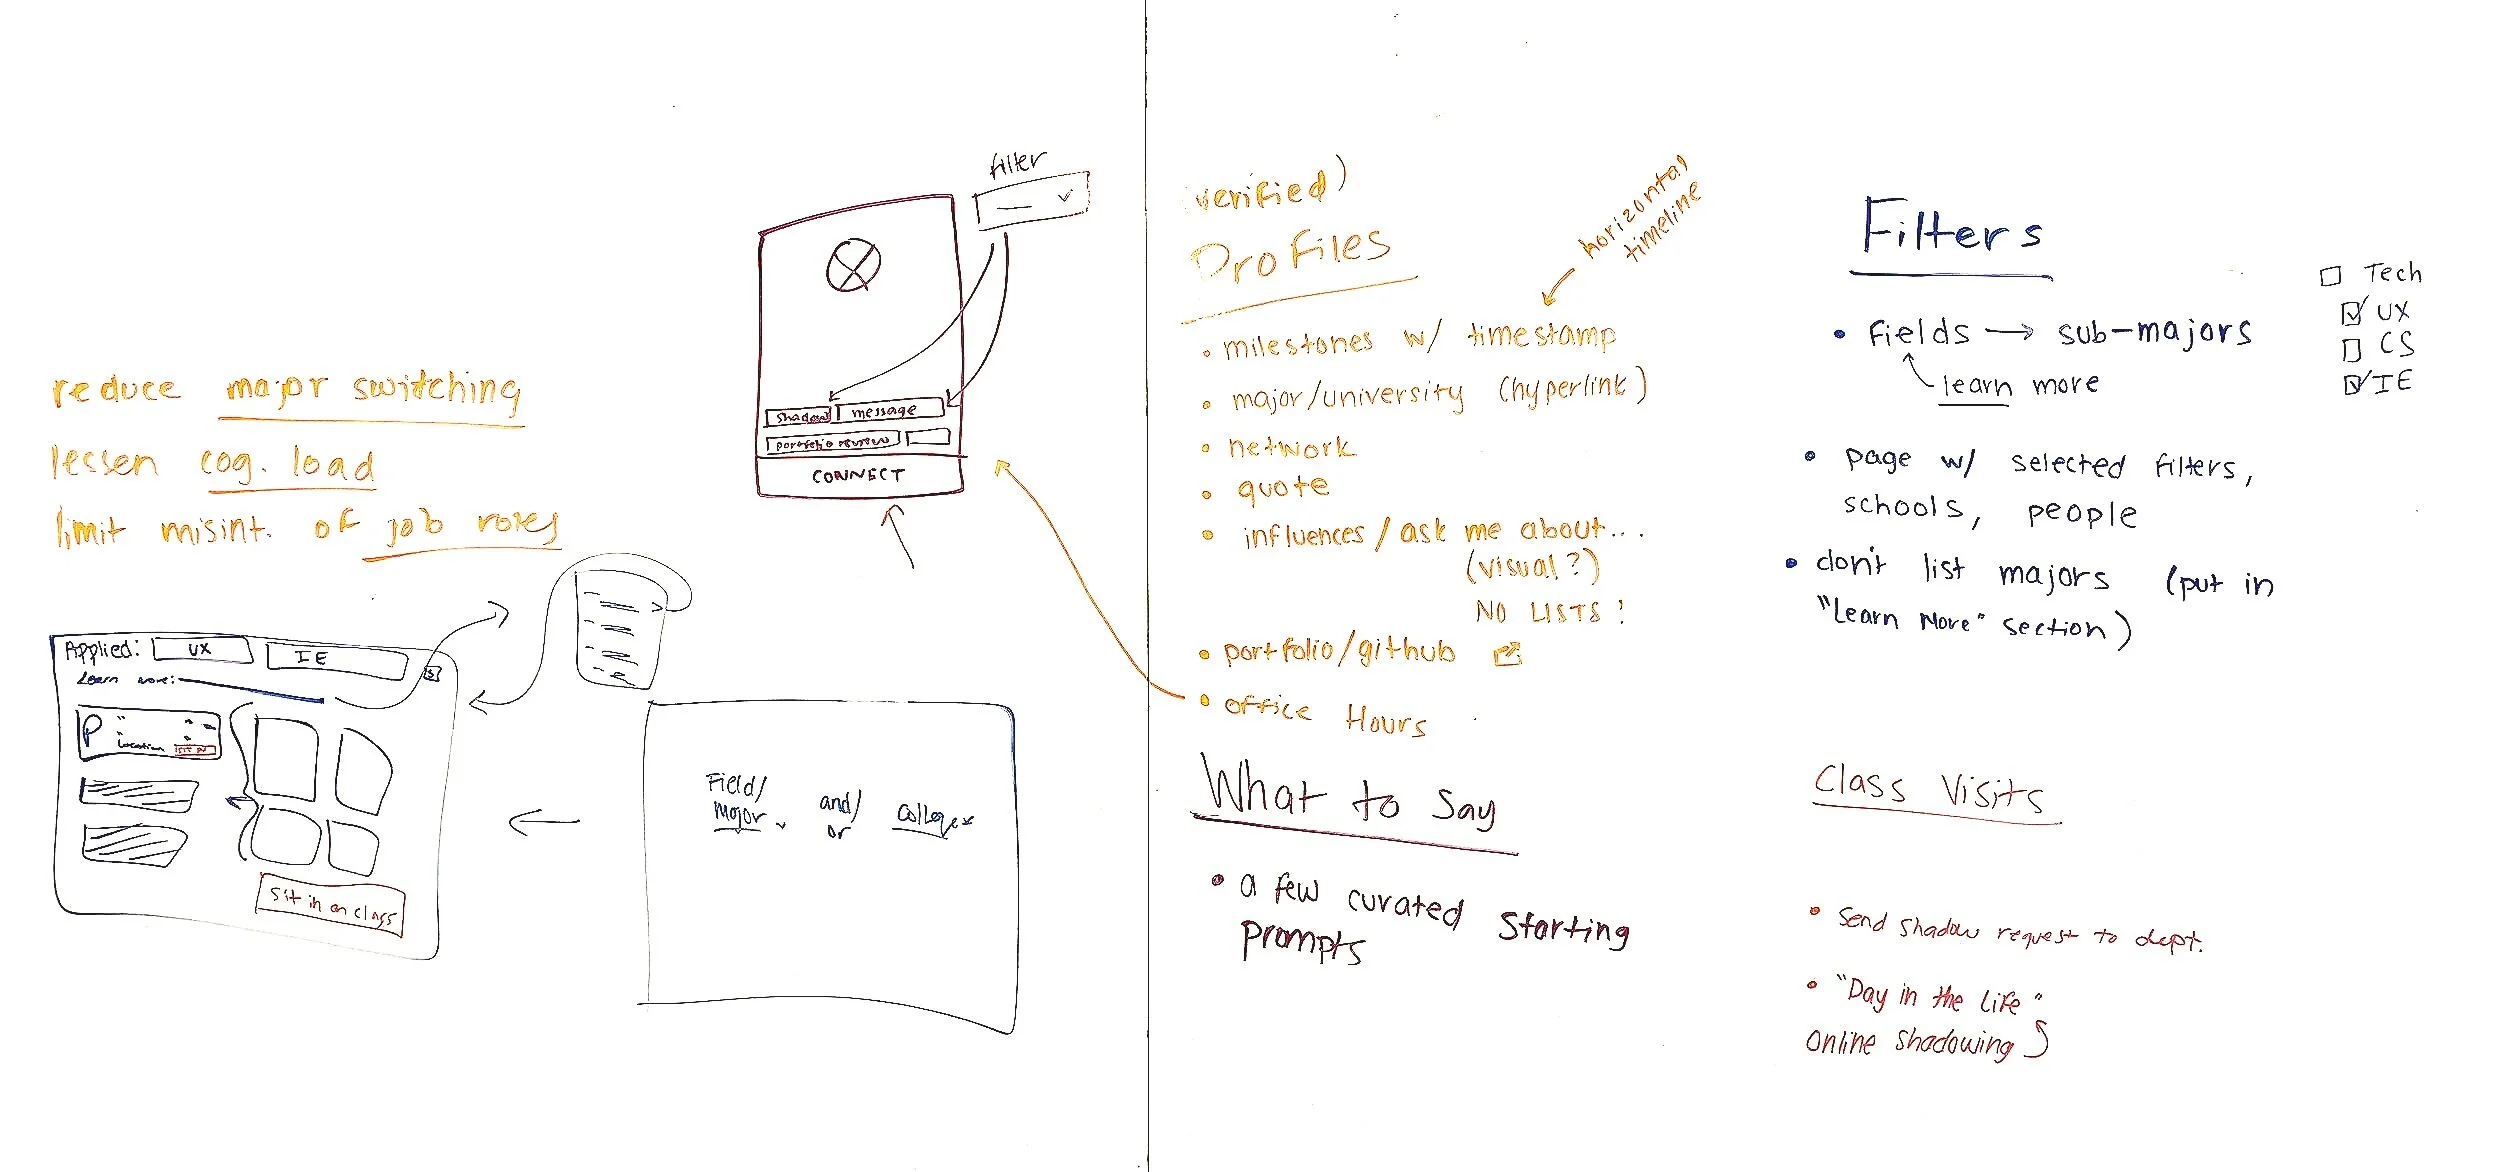 reduce major switching
lessen cog. load
limit misint. of job roles
Filter
shadow
message
portfolio review
CONNECT
Applied:
UX
IE
Learn more:
P
Location
sit in
Sit in on class
Field/
Major
and/
or
college
verified)
Profiles
horizontal
timeline
• milestones w/ timestamp
• major/university (hyperlink)
• network
• quote
• influences / ask me about...
(visual?)
NO LISTS!
• portfolio/github
• office Hours
What to say
• a few curated starting
prompts
Filters
• Fields → sub-majors
learn more
Tech
UX
CS
IE
• page w/ selected filters,
schools, people
• don't list majors (put in
"Learn More" section)
Class Visits
• Send shadow request to dept.
• "Day in the Life"
Online Shadowing